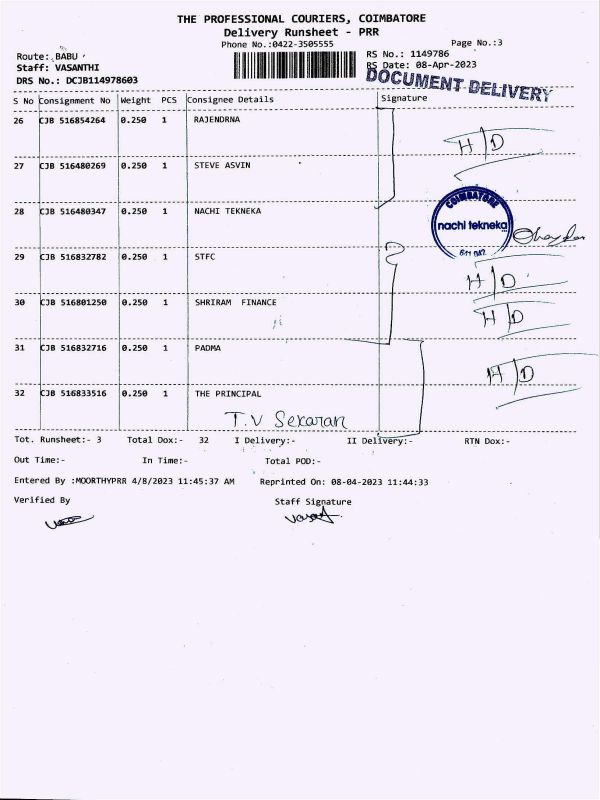 THE PROFESSIONAL COURIERS, COIMBATORE
Delivery Runsheet - PRR
Phone No.:0422-3505555
Page No.:3
Route: BABU
RS No.: 1149786
Staff: VASANTHI
RS Date: 08-Apr-2023
DRS No.: DCJB114978603
DOCUMENT DELIVERY
S No Consignment No Weight PCS Consignee Details Signature
26 CJB 516854264 0.250 1 RAJENDRNA
H/D
27 CJB 516480269 0.250 1 STEVE ASVIN
28 CJB 516480347 0.250 1 NACHI TEKNEKA
COIMBATORE
nachi tekneka
29 CJB 516832782 0.250 1 STFC
H/D
30 CJB 516801250 0.250 1 SHRIRAM FINANCE
H/D
31 CJB 516832716 0.250 1 PADMA
H/D
32 CJB 516833516 0.250 1 THE PRINCIPAL
T.V Sekaran
Tot. Runsheet:- 3 Total Dox:- 32 I Delivery:- II Delivery:- RTN Dox:-
Out Time:- In Time:- Total POD:-
Entered By :MOORTHYPRR 4/8/2023 11:45:37 AM Reprinted On: 08-04-2023 11:44:33
Verified By Staff Signature